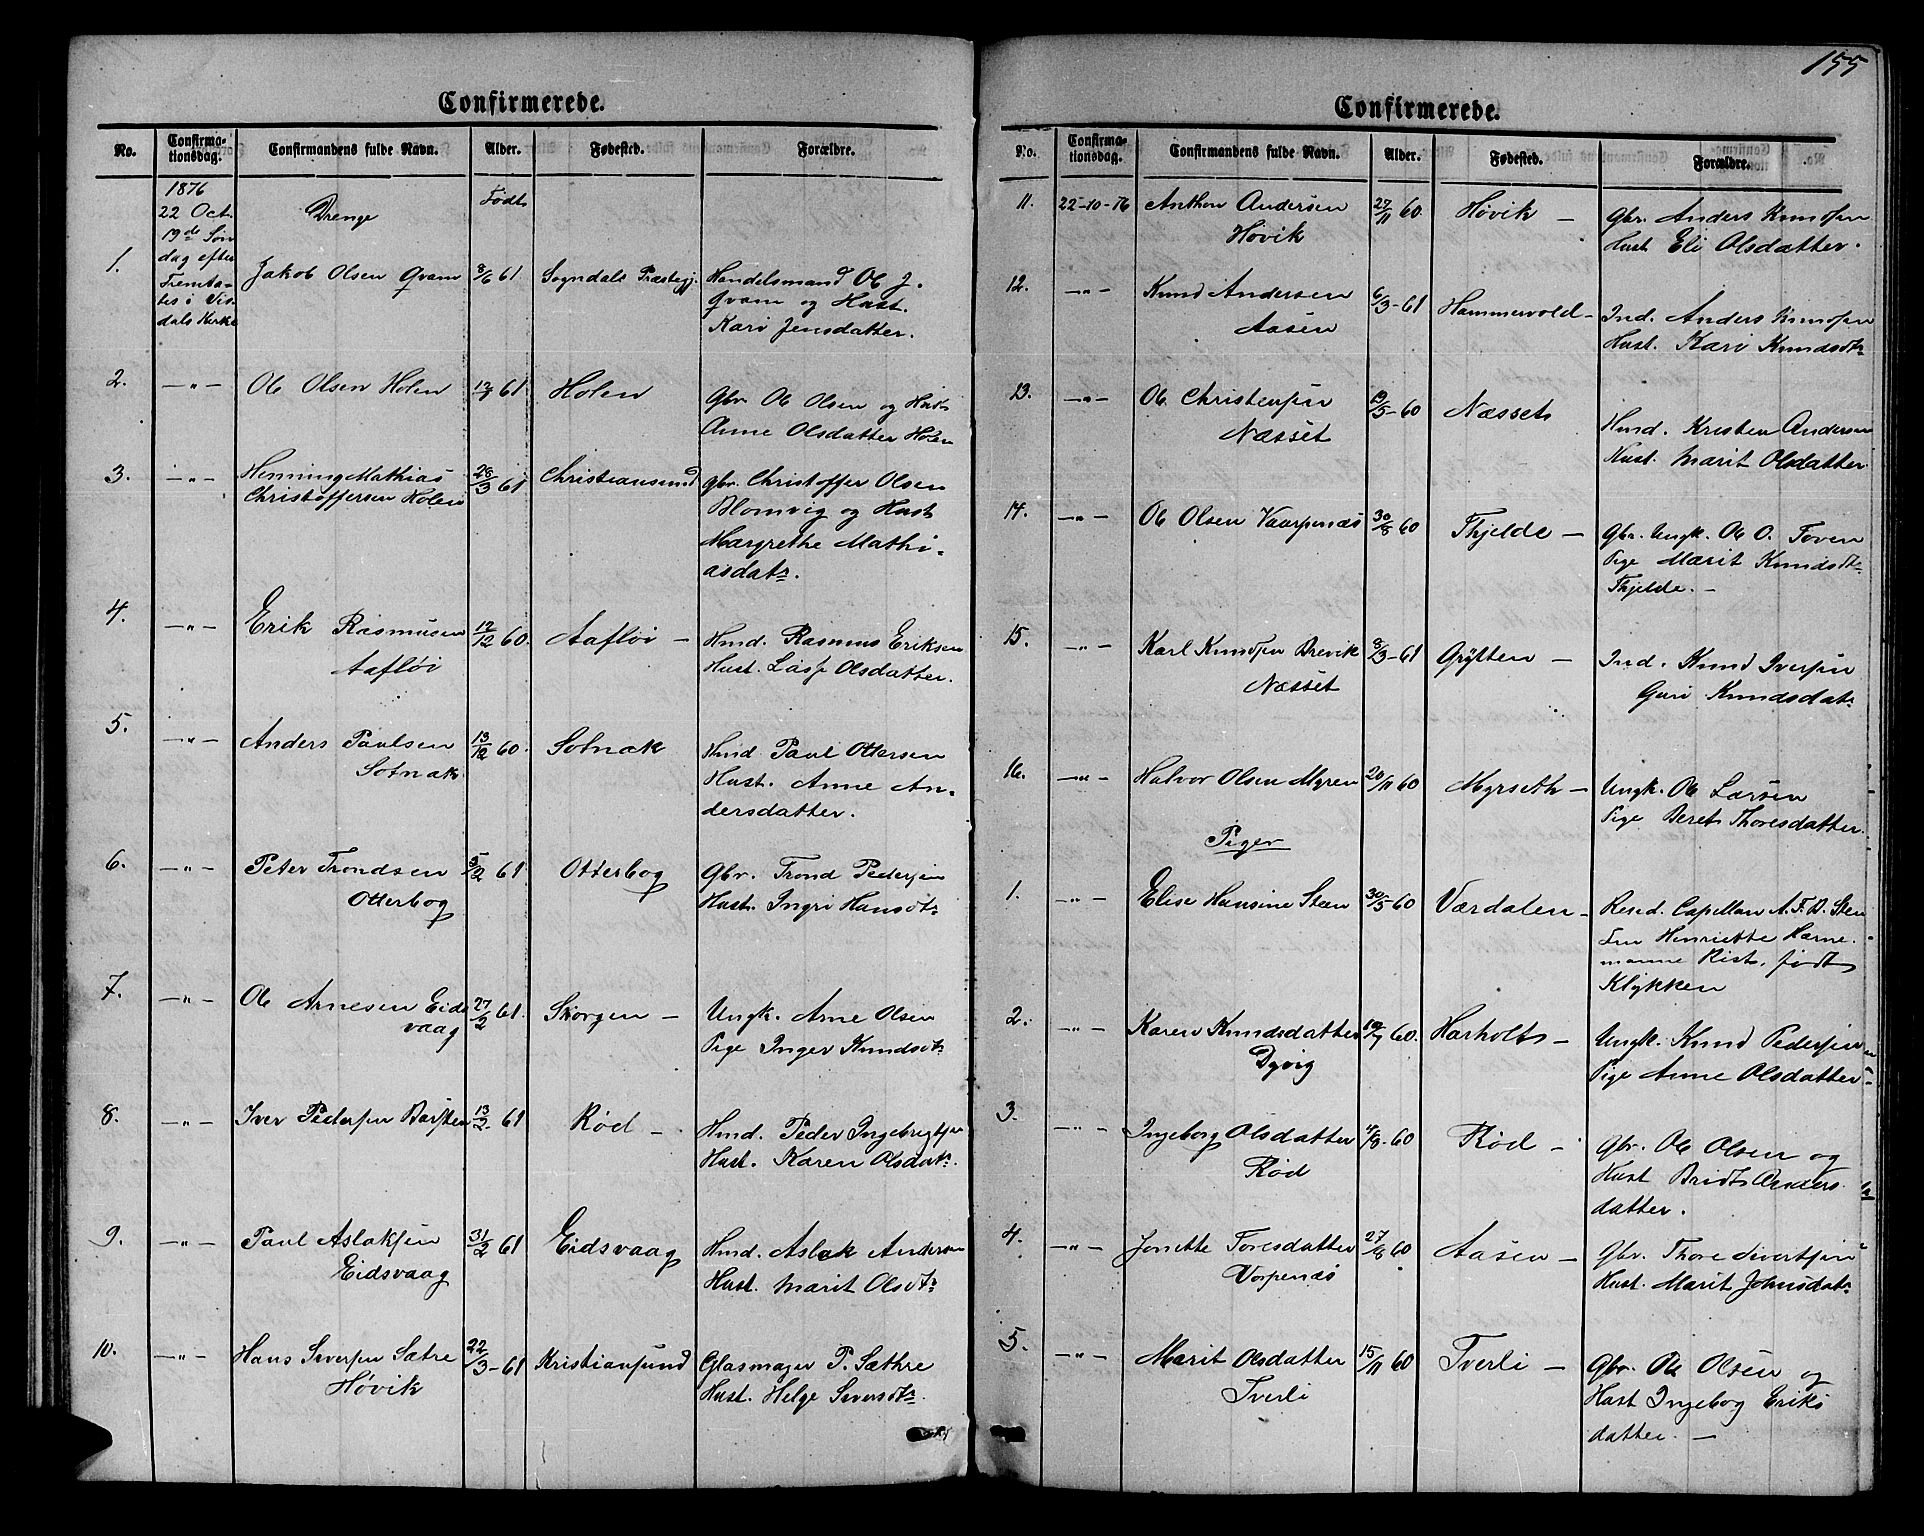 Confirmerede.
No. Confirma-tionsdag. Confirmandens fulde Navn. Alder. Fødested. Forældre.
1876
22 Oct. Drenge Født
19de Søn
dag efter
1. Jakob Olsen Qvam 8/6 61 Sogndals Præstegj. Handelsmand Ole J.
Qvam og Hust.
Kari Jensdatter.
dals Kirke
2. -"- Ole Olsen Holen 61 Holen Gbr Ole Olsen og Hust
Anne Olsdatter Holen
3. -"- Henning Mathias 28/3 61 Christiansund gbr. Christoffer Olsen
Christoffersen Holen Blomvig og Hust
Margrethe Mathi-
asdatr.
4. -"- Erik Rasmusen 12/12 60. Aafløi - Hmd. Rasmus Eriksen
Aafløi Hust. Olsdatter.
5. -"- Anders Paulsen 13/12 60 Sotnak Hmd. Paul Ottersen
Sotnak Hust. Anne An-
dersdatter.
6. -"- Peter Trondsen 5/2 61 Otterbog Gbr. Trond Pedersen
Otterbog Hust. Ingri Hansdtr
7. -"- Ole Arnesen Eids 27/2 61. Skorgen - Ungk. Arne Olsen
vaag Pige Inger Knudsdtr
8. -"- Iver Pedersen 13/2 61 Rød - Hmd. Peder Ingebrigtsen
Hust. Karen Olsdatr.
9. -"- Paul Aslaksen 31/2 61 Eidsvaag Hmd. Aslak Andersen
Eidsvaag Hust. Marit Olsdtr
10. -"- Hans Siversen Sætre 22/3-61 Kristiansund Glasmager P. Sæthre
Høvik Hust. Helge Siversdtr.
155
Confirmerede.
No. Confirma-tionsdag. Confirmandens fulde Navn. Alder. Fødested. Forældre.
11. 22-10-76 Anthon Andersen 27/11 60. Høvik - Gbr. Anders Knudsen
Høvik Hust Eli Olsdatter.
12. -"- Knud Andersen 6/3-61 Hammervold- Ind. Anders Knudsen
Aasen Hust. Kari Knudsdtr
13. -"- Ole Christensen 19/5-60 Næsset Hmd. Kristen Andersen
Næsset Hust. Marit Olsdatter
14. -"- Ole Olsen Vaarpenæs 30/8 60 Thjelde - Gbr. Ungk. Ole O. Toven
Pige Marit Knudsdtr
Thjelde. -
15. -"- Karl Knudsen Brevik 8/3-61 Grytten - Ind. Knud Iversen
Næsset Guri Knudsdatr
16. -"- Halvor Olsen Myren 20/11 60 Myrseth - Ungk. Ole Larsen
Pige Beret Thoresdatter.
Piger
1. -"- Elise Hansine Steen 30/5-60 Værdalen - Resd. Capellan A. F. D. Sten
Fru Henriette Herme-
manne Rist, født
Klykken
2. -"- Karen Knudsdatter 60. Harholt - Ungk. Knud Pedersen
Dyvig Pige Anne Olsdatter
3. -"- Ingeborg Olsdatter 4/8-60 Rød - Gbr. Ole Olsen og
Rød Hust Anders
datter.
4. -"- Jonette Toresdatter 27/8 60 Aasen - Gbr. Thore Sivertsen
Vorpenæs Hust. Marit Johnsdatr
5. -"- Marit Olsdatter 15/11 60 Tverli - Gbr. Ole Olsen og
Tverli Hust Ingebog Eriks
datter. -